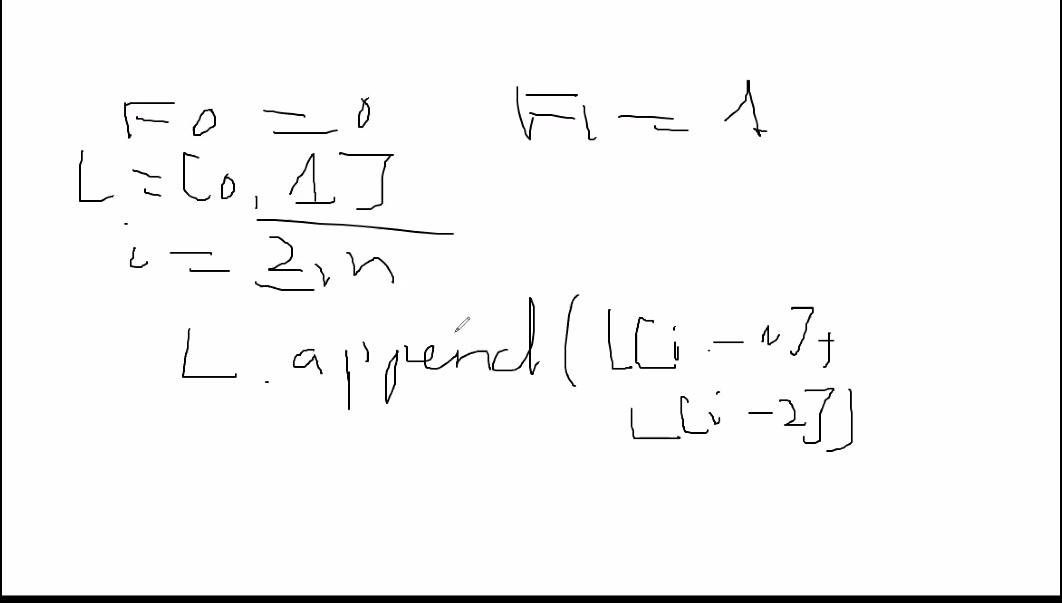 F0 = 0 F1 = 1
L = [0, 1]
i = 2, n
L.append(L[i-1]+
L[i-2])